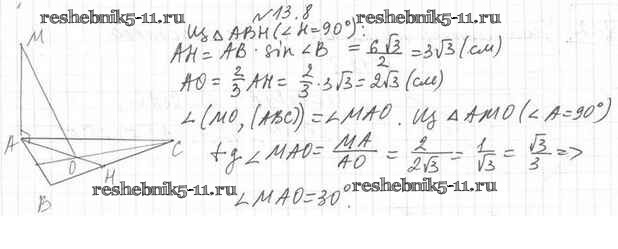 reshebnik5-11.ru
№13.8
reshebnik5-11.ru
Из △ABH (∠H=90°):
AH = AB · sin ∠B = 6√3/2 = 3√3 (см)
AO = 2/3 AH = 2/3 · 3√3 = 2√3 (см)
∠(MO, (ABC)) = ∠MAO. Из △AMO (∠A=90°)
tg ∠MAO = MA/AO = 2/2√3 = 1/√3 = √3/3 =>
∠MAO = 30°.
M
A
O
C
H
B
reshebnik5-11.ru
reshebnik5-11.ru